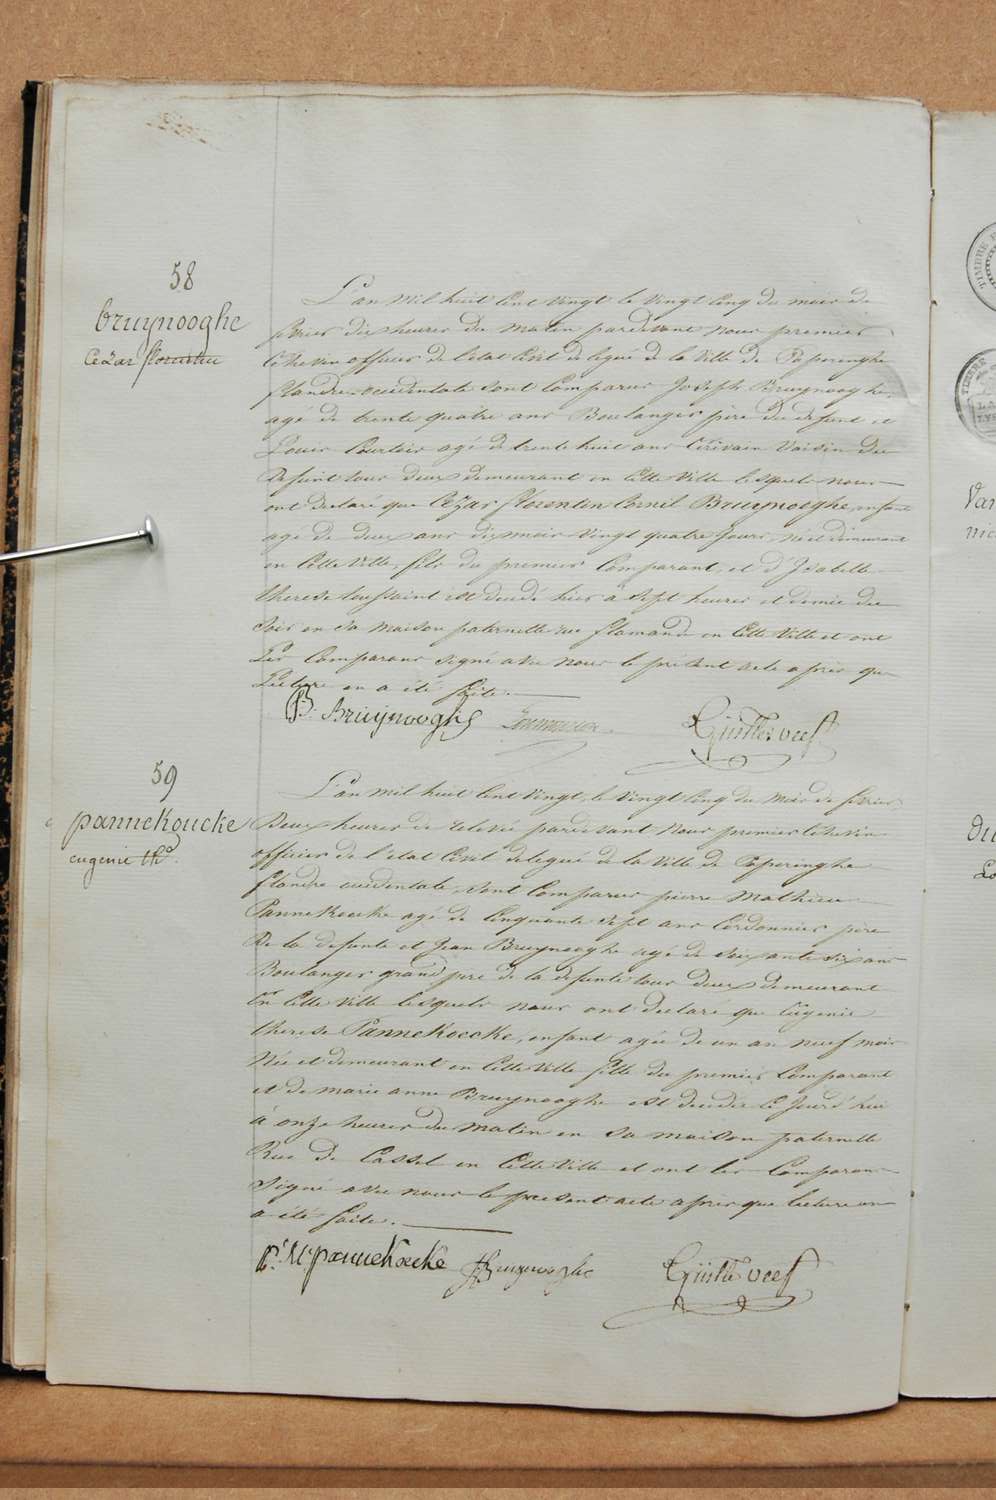 58
bruynooghe
Cezar florentin
L'an mil huit cent vingt le vingt cinq du mois de
fevrier dix heures du matin pardevant nous premier
Echevin officier de l'etat civil delegué de la Ville de Poperinghe
flandre occidentale sont comparus Joseph Bruynooghe,
agé de trente quatre ans Boulanger père du defunt et
Louis Courtois agé de trente huit ans Ecrivain Voisin du
defunt tous deux demeurant en cette Ville lesquels nous
ont declaré que Cézar florentin Cornil Bruynooghe, enfant
agé de deux ans dix mois vingt quatre jours, né et demeurant
en cette Ville, fils du premier Comparant, et d'Isabelle
therese toussaint est decedé hier à sept heures et demie du
soir en sa maison paternelle rue flamande en cette Ville et ont
Les Comparans signé avec nous le présent acte après que
Lecture en a été faite.
B. Bruynooghe
59
pannekoucke
eugenie th.
L'an mil huit cent vingt, le vingt cinq du mois de fevrier
Deux heures de relevée pardevant Nous premier Echevin
officier de l'etat civil delegué de la Ville de Poperinghe
flandre occidentale, sont Comparus pierre Mathieu
Pannekoecke agé de Cinquante sept ans Cordonnier père
de la defunte et Jean Bruynooghe agé de soixante six ans
Boulanger grand père de la defunte tous deux demeurant
En cette Ville lesquels nous ont declaré que Eugenie
therese Pannekoecke, enfant agée de un an neuf mois
Née et demeurant en cette Ville fille du premier Comparant
et de marie anne Bruynooghe est decedée ce jourd'hui
à onze heures du matin en sa maison paternelle
Rue de Cassel en cette Ville et ont les Comparans
signé avec nous le present acte après que lecture en
a été faite.
P. M. pannekoecke
Bruynooghe
Van